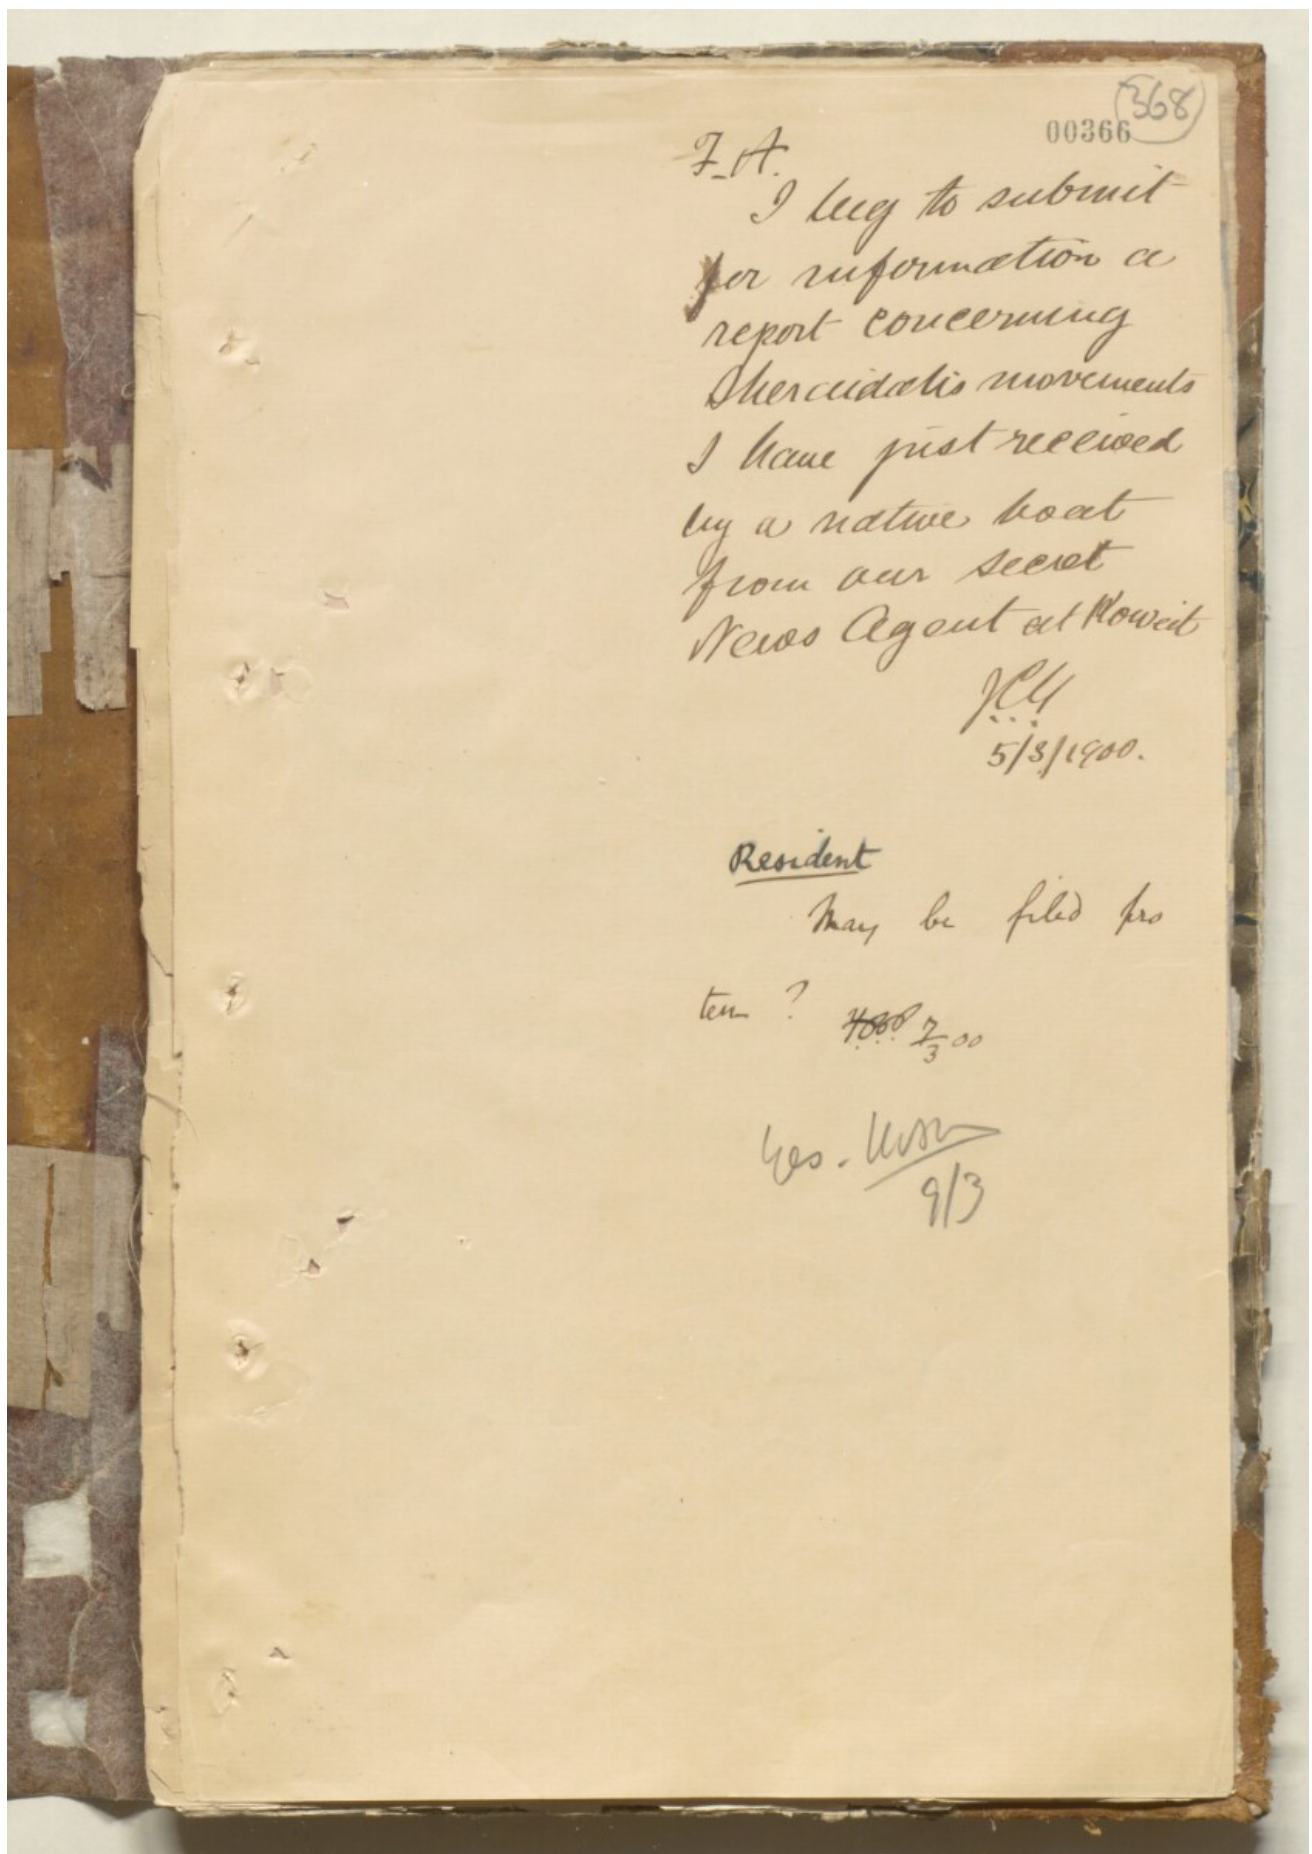 368
00366
F.A.
I beg to submit
for information a
report concerning
movements
I have just received
by a native boat
from our secret
News Agent at Koweit
5/3/1900.
Resident
May be filed pro
tem ?
7/3 00
Yes.
9/3